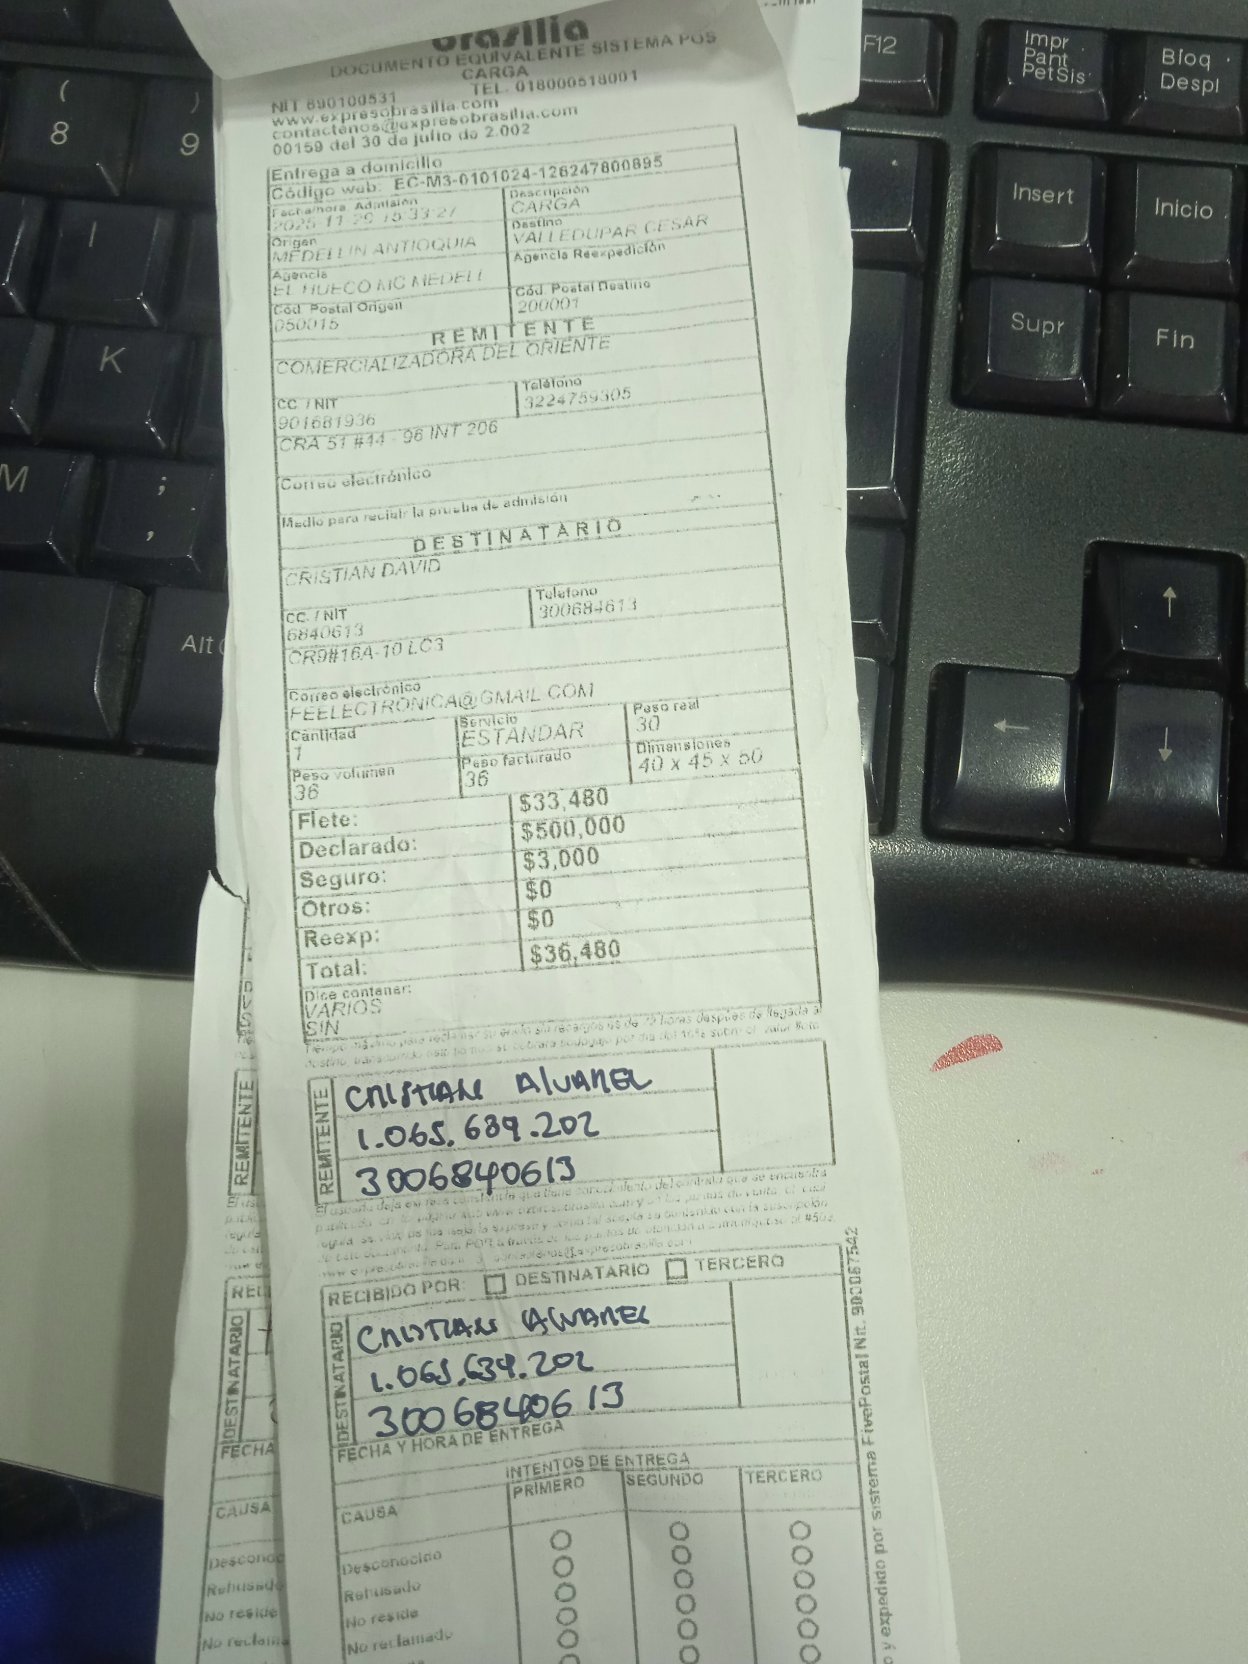 brasilia
DOCUMENTO EQUIVALENTE SISTEMA POS
CARGA
NIT 890100531 TEL. 018000518001
www.expresobrasilia.com
contactenos@expresobrasilia.com
00159 del 30 de julio de 2.002
Entrega a domicilio
Código web: EC-M3-0101024-126247800895
Fecha/hora Admisión Descripción
2025-11-29 15:33:27 CARGA
Origen Destino
MEDELLIN ANTIOQUIA VALLEDUPAR CESAR
Agencia Agencia Reexpedición
EL HUECO MC MEDELL
Cód. Postal Origen Cód. Postal Destino
050015 200001
REMITENTE
COMERCIALIZADORA DEL ORIENTE
CC. / NIT Teléfono
901681936 3224759305
CRA 51 #44 - 96 INT 206
Correo electrónico
Medio para recibir la prueba de admisión
DESTINATARIO
CRISTIAN DAVID
CC. / NIT Telefono
6840613 300684613
CR9#16A-10 LC3
Correo electrónico
FEELECTRONICA@GMAIL.COM
Cantidad Servicio Peso real
1 ESTANDAR 30
Peso volumen Peso facturado Dimensiones
36 36 40 x 45 x 50
Flete: $33,480
Declarado: $500,000
Seguro: $3,000
Otros: $0
Reexp: $0
Total: $36,480
Dice contener:
VARIOS
SIN
REMITENTE
CRISTIAN AlVAREZ
1.065.639.202
3006840613
RECIBIDO POR: DESTINATARIO TERCERO
DESTINATARIO
CRISTIAN AlVAREZ
1.065.639.202
3006840613
FECHA Y HORA DE ENTREGA
INTENTOS DE ENTREGA
CAUSA PRIMERO SEGUNDO TERCERO
Desconocido
Rehusado
No reside
No reclamado
o y expedido por sistema FivePostal Nit. 900087542
REMITENTE
DESTINATARIO
FECHA
CAUSA
No reside
( 8
) 9
I
K
M
;
,
Alt
F12
Impr
Pant
PetSis
Bloq
Despl
Insert
Inicio
Supr
Fin
↑
←
↓